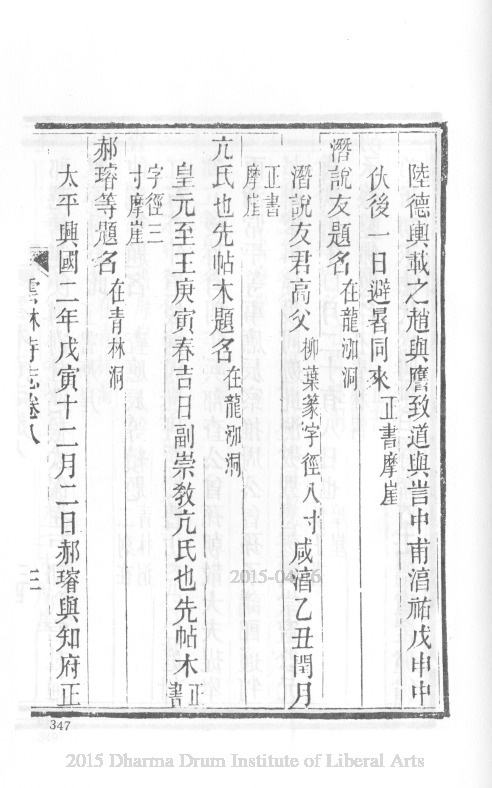 陸德輿載之趙與𥲅致道與訔中甫湻祐戊申中
伏後一日避暑同來正書摩崖
潛說友題名在龍泓洞
潛說友君高父柳葉篆字徑八寸咸湻乙丑閏月
正書
摩崖
亢氏也先帖木題名在龍泓洞
皇元至王庚寅春吉日副崇教亢氏也先帖木正書
字徑三
寸摩崖
郝璿等題名在青林洞
太平興國二年戊寅十二月二日郝璿與知府正
雲林寺志卷八
三
347
2015 Dharma Drum Institute of Liberal Arts